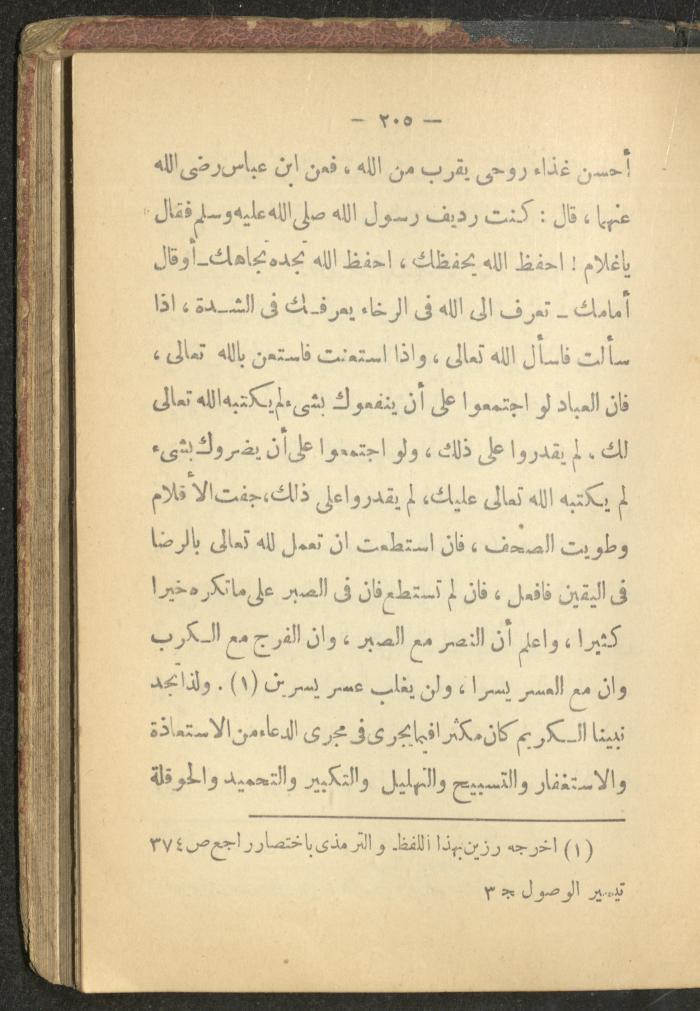 — ٢٠٥ —
أحسن غذاء روحى يقرب من الله ، فعن ابن عباس رضى الله
عنهما ، قال : كنت رديف رسول الله صلى الله عليه وسلم فقال
ياغلام ! احفظ الله يحفظك ، احفظ الله تجده تجاهك ـ أو قال
أمامك ـ تعرف الى الله فى الرخاء يعرفـك فى الشـدة ، اذا
سألت فاسأل الله تعالى ، واذا استعنت فاستعن بالله تعالى ،
فان العباد لو اجتمعوا على أن ينفعوك بشىء لم يكتبه الله تعالى
لك ، لم يقدروا على ذلك ، ولو اجتمعوا على أن يضروك بشىء
لم يكتبه الله تعالى عليك، لم يقدروا على ذلك، جفت الأقلام
وطويت الصحف ، فان استطعت ان تعمل لله تعالى بالرضا
فى اليقين فافعل ، فان لم تستطع فان فى الصبر على ماتكره خيرا
كثيرا ، واعلم أن النصر مع الصبر ، وان الفرج مع الـكرب
وان مع العسر يسرا ، ولن يغلب عسر يسرين (١) . ولذا تجد
نبينا الـكريم كان مكثرا فيما يجرى فى مجرى الدعاء من الاستعاذة
والاستغفار والتسبيح والتهليل والتكبير والتحميد والحوقلة
(١) اخرجه رزين بهذا اللفظ. و الترمذى باختصار راجع ص ٣٧٤
تيسير الوصول ج ٣